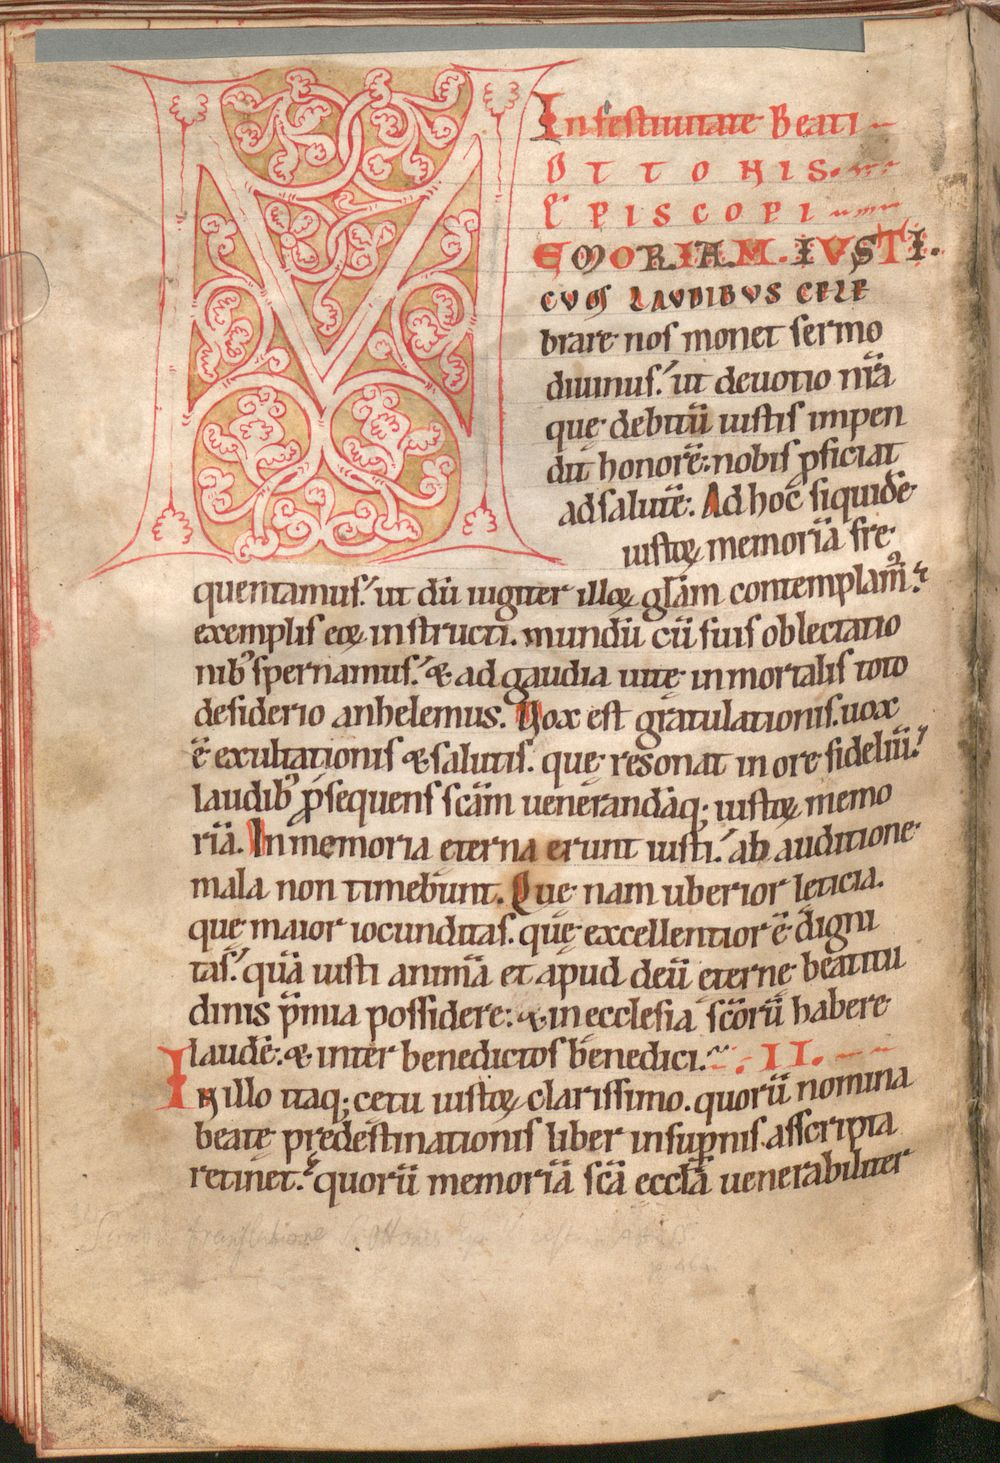 In festiuitate Beati
OTTONIS
EPISCOPI
MEMORIAM. IVSTI.
CVIꝰ LAVDIBVS CELE
brare nos monet sermo
diuinus. ut deuotio nr̄a
quę debitū iustis impen
dit honorē: nobis ꝓficiat
ad salutē. Ad hoc siquidē
iustoꝝ memoriā fre
quentamus. ut dū iugiter illoꝝ glām contemplam̄.
exemplis eoꝝ instructi. mundū cū suis oblectatio
nibꝰ spernamus. & ad gaudia uitę inmortalis toto
desiderio anhelemus. Vox est gratulationis. uox
ē exultationis & salutis. quę resonat in ore fideliū.
laudibꝰ ꝓsequens scām uenerandāq; iustoꝝ memo
riā. In memoria eterna erunt iusti. ab auditione
mala non timebunt. Quę nam uberior leticia.
quę maior iocunditas. quę excellentior ē digni
tas. quā iusti animā et apud deū eternę beatitu
dinis p̄mia possidere: & in ecclesia scōrū habere
laudē: & inter benedictos benedici. II.
In illo itaq; cetu iustoꝝ clarissimo. quorū nomina
beatę predestinationis liber in suꝑnis asscripta
retinet. quorū memoriā scā ecclā uenerabiliter